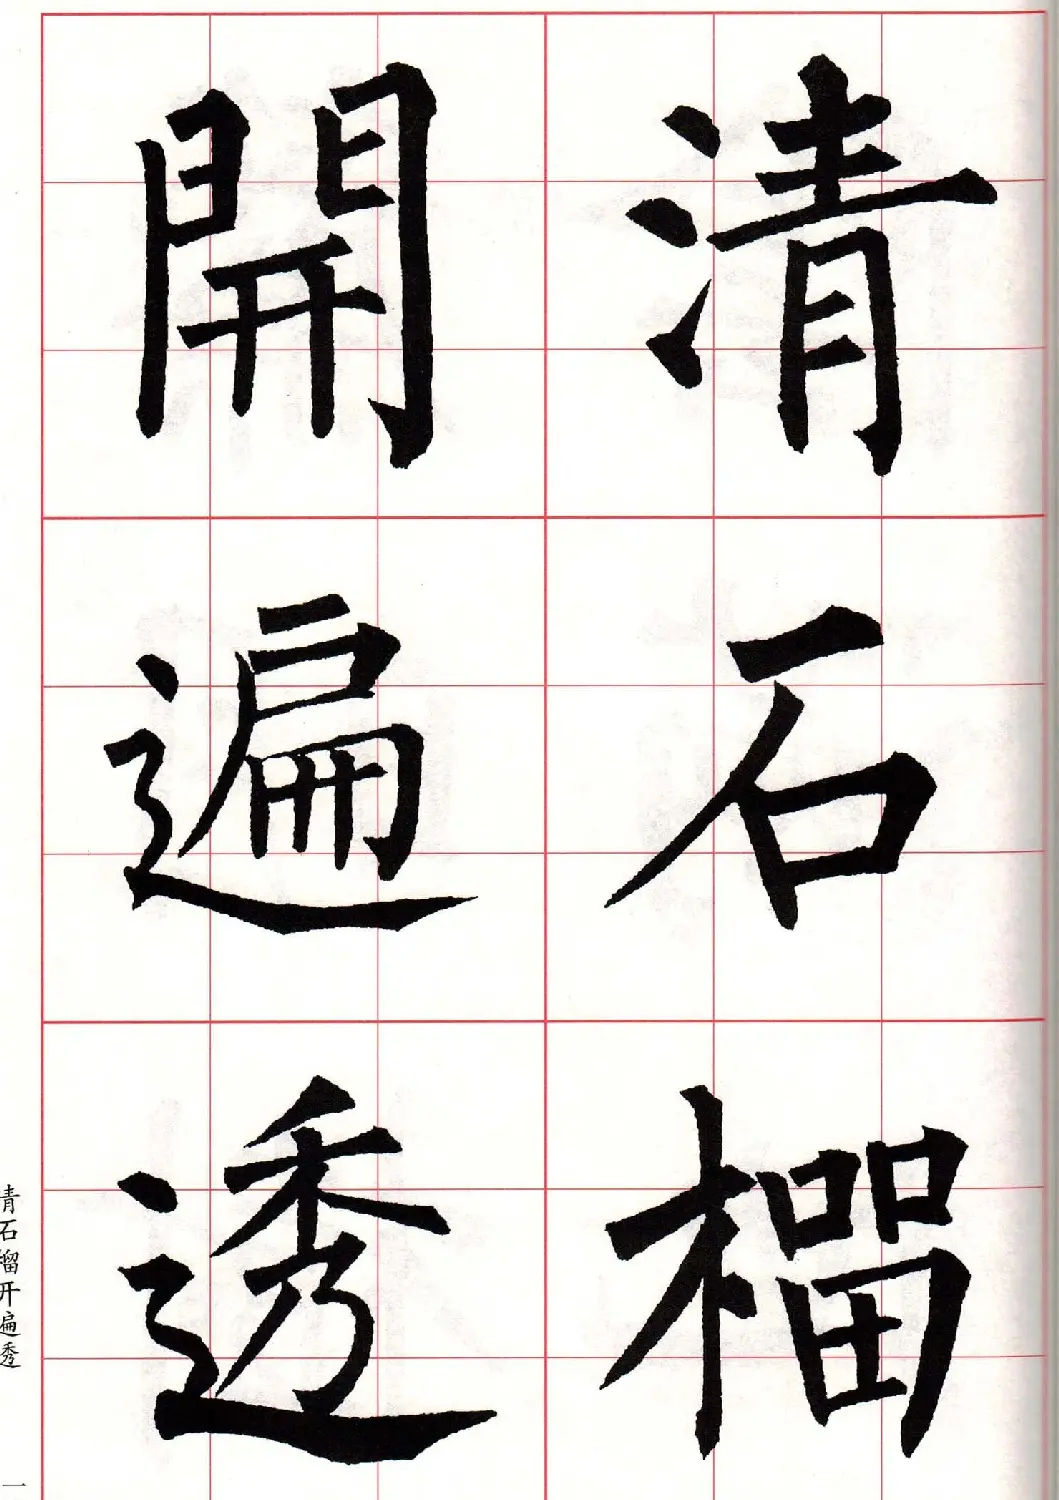 清石榴
開遍透
清石榴开遍透
一